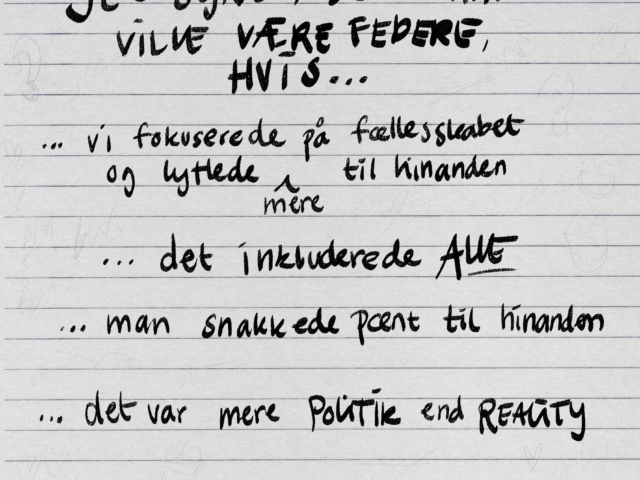 VILLE VÆRE FEDERE,
HVIS...
... vi fokuserede på fællesskabet
og lyttede ^ til hinanden
mere
... det inkluderede ALLE
... man snakkede pænt til hinanden
... det var mere POLITIK end REALITY